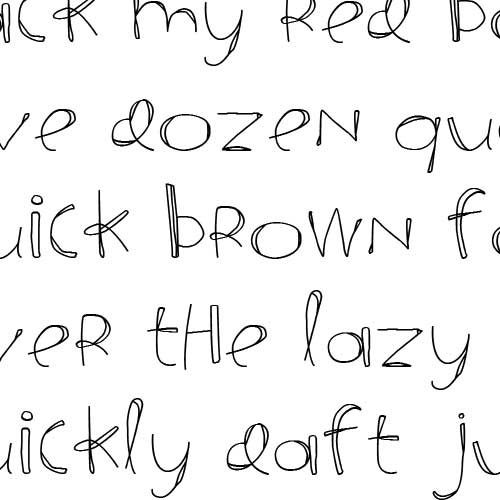 ack my red bo
ve dozen qu
uick brown fo
ver the lazy
uickly daft ju